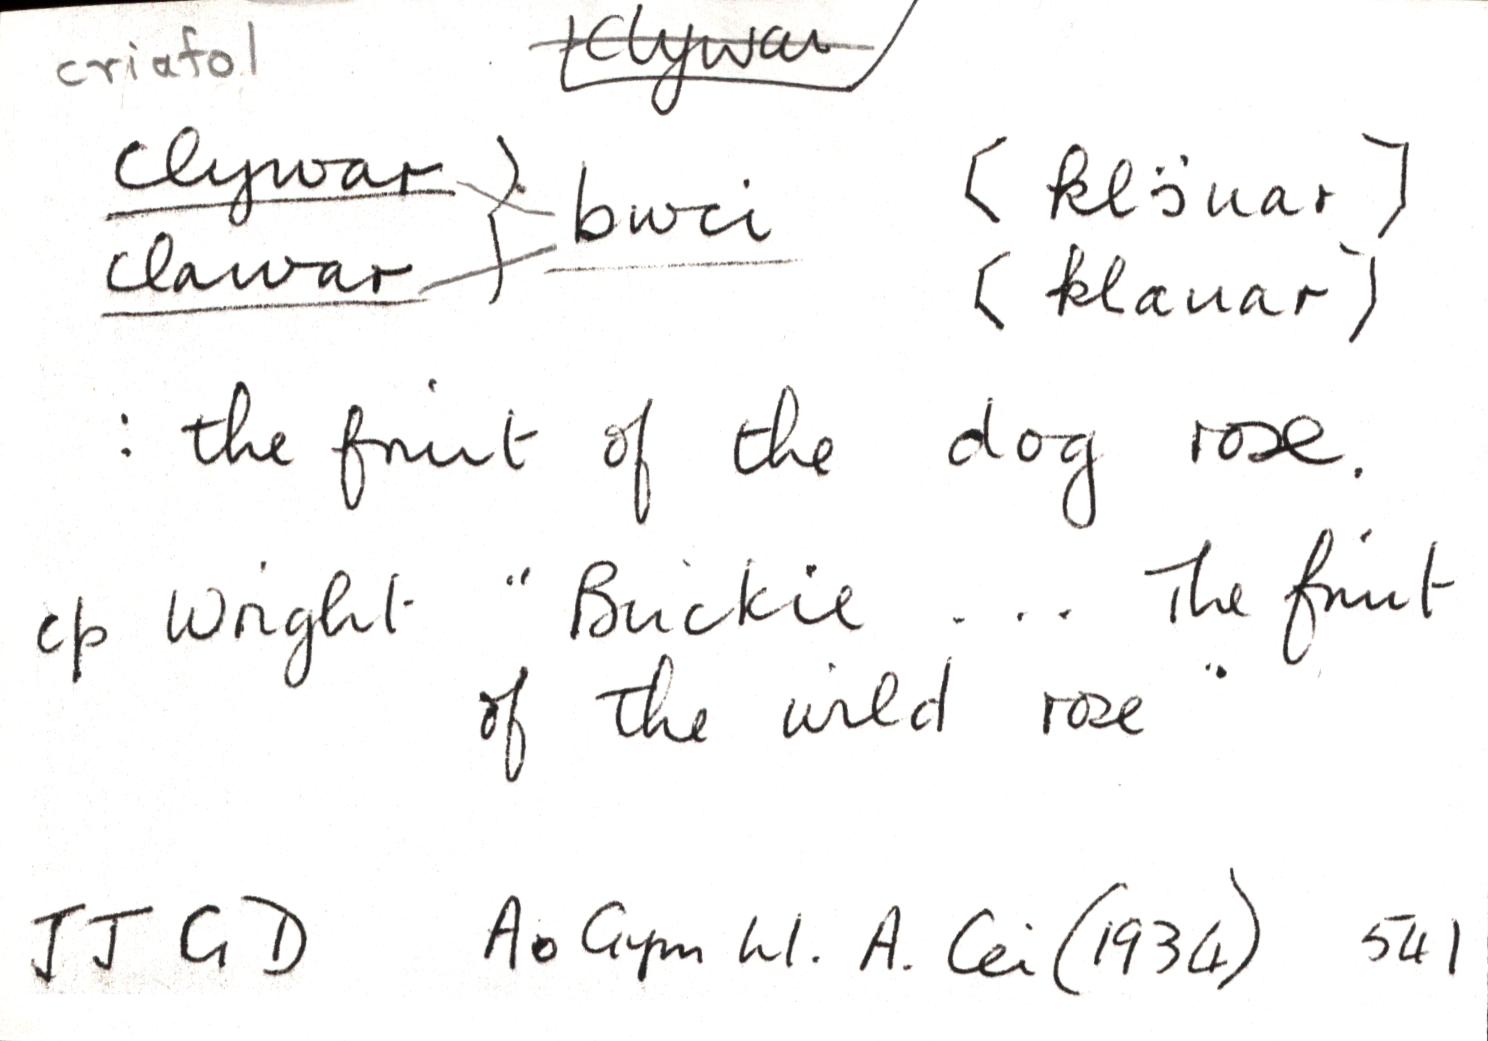 criafol clywar
clywar } bwci [klöuar]
clawar [klauar]
: the fruit of the dog rose.
cp Wright "Buckie .... The fruit
of the wild rose"
JJGD Ao Gym W. A. Cei (1934) 541